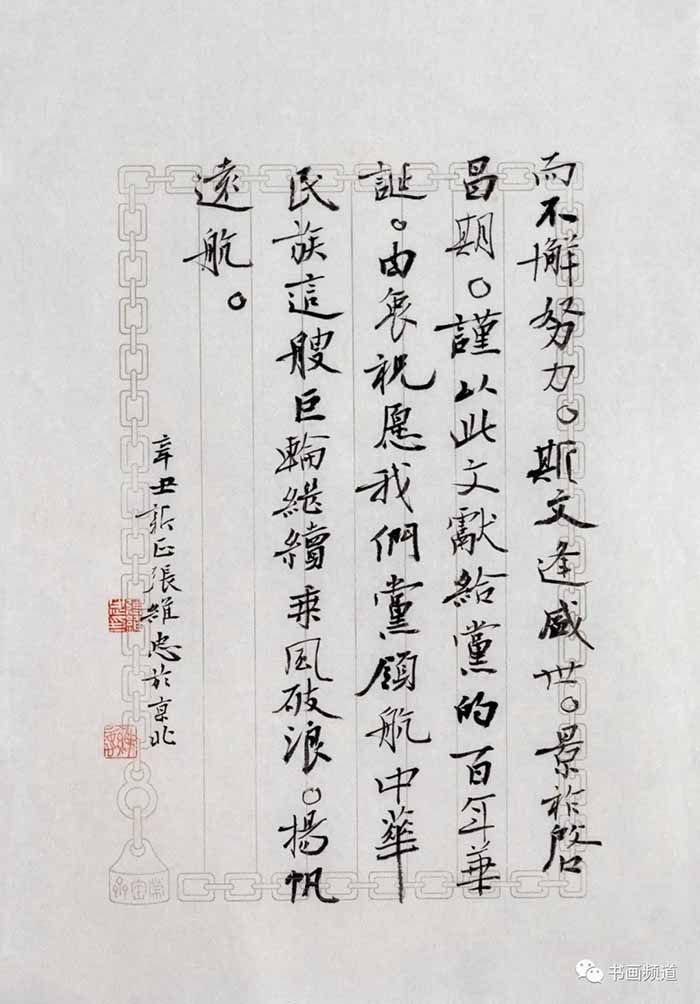 而不懈努力。斯文逢盛世。景祚啓
昌期。謹以此文獻給黨的百年華
誕。由衷祝愿我們黨領航中華
民族這艘巨輪繼續乘风破浪。揚帆
遠航。
辛丑新正張維忠於京北
书画频道